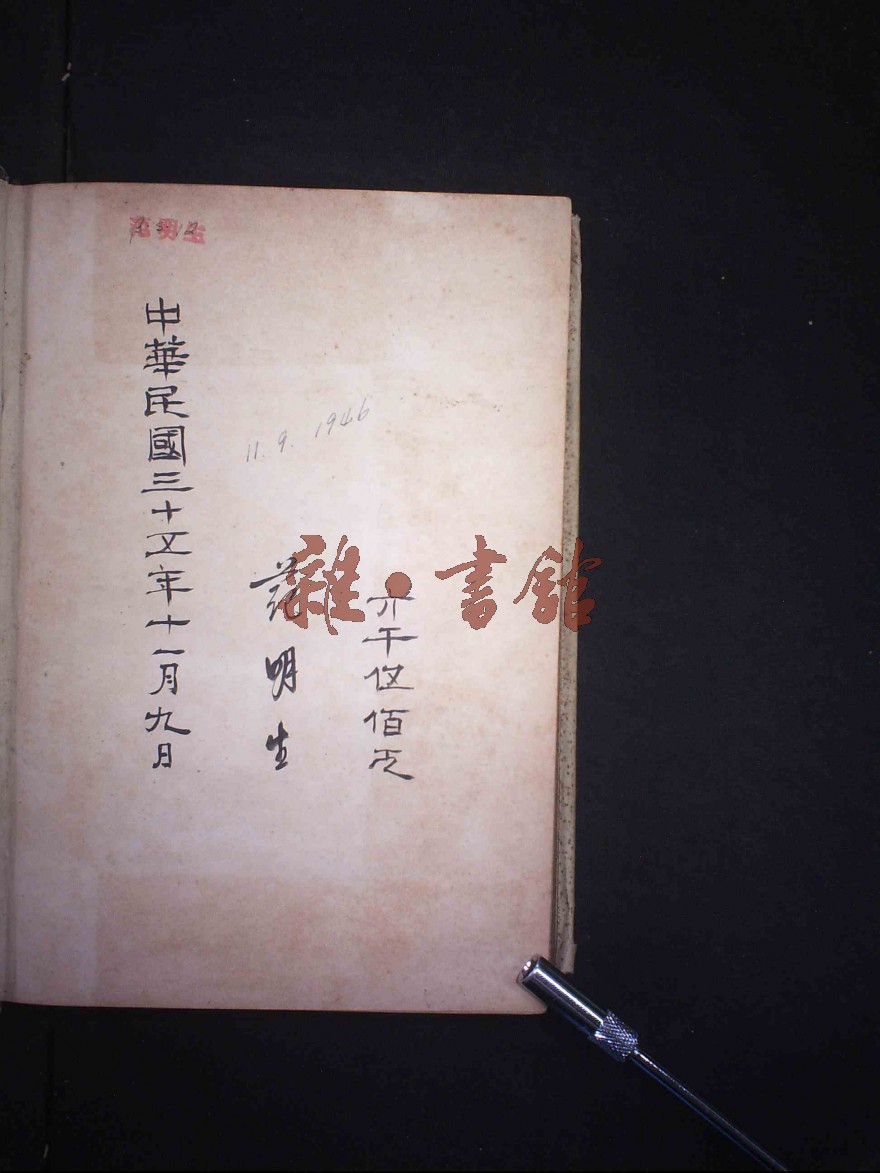 千伍佰元
范明生
11. 9. 1946
中華民國三十五年十一月九日
范明生
雜·書館